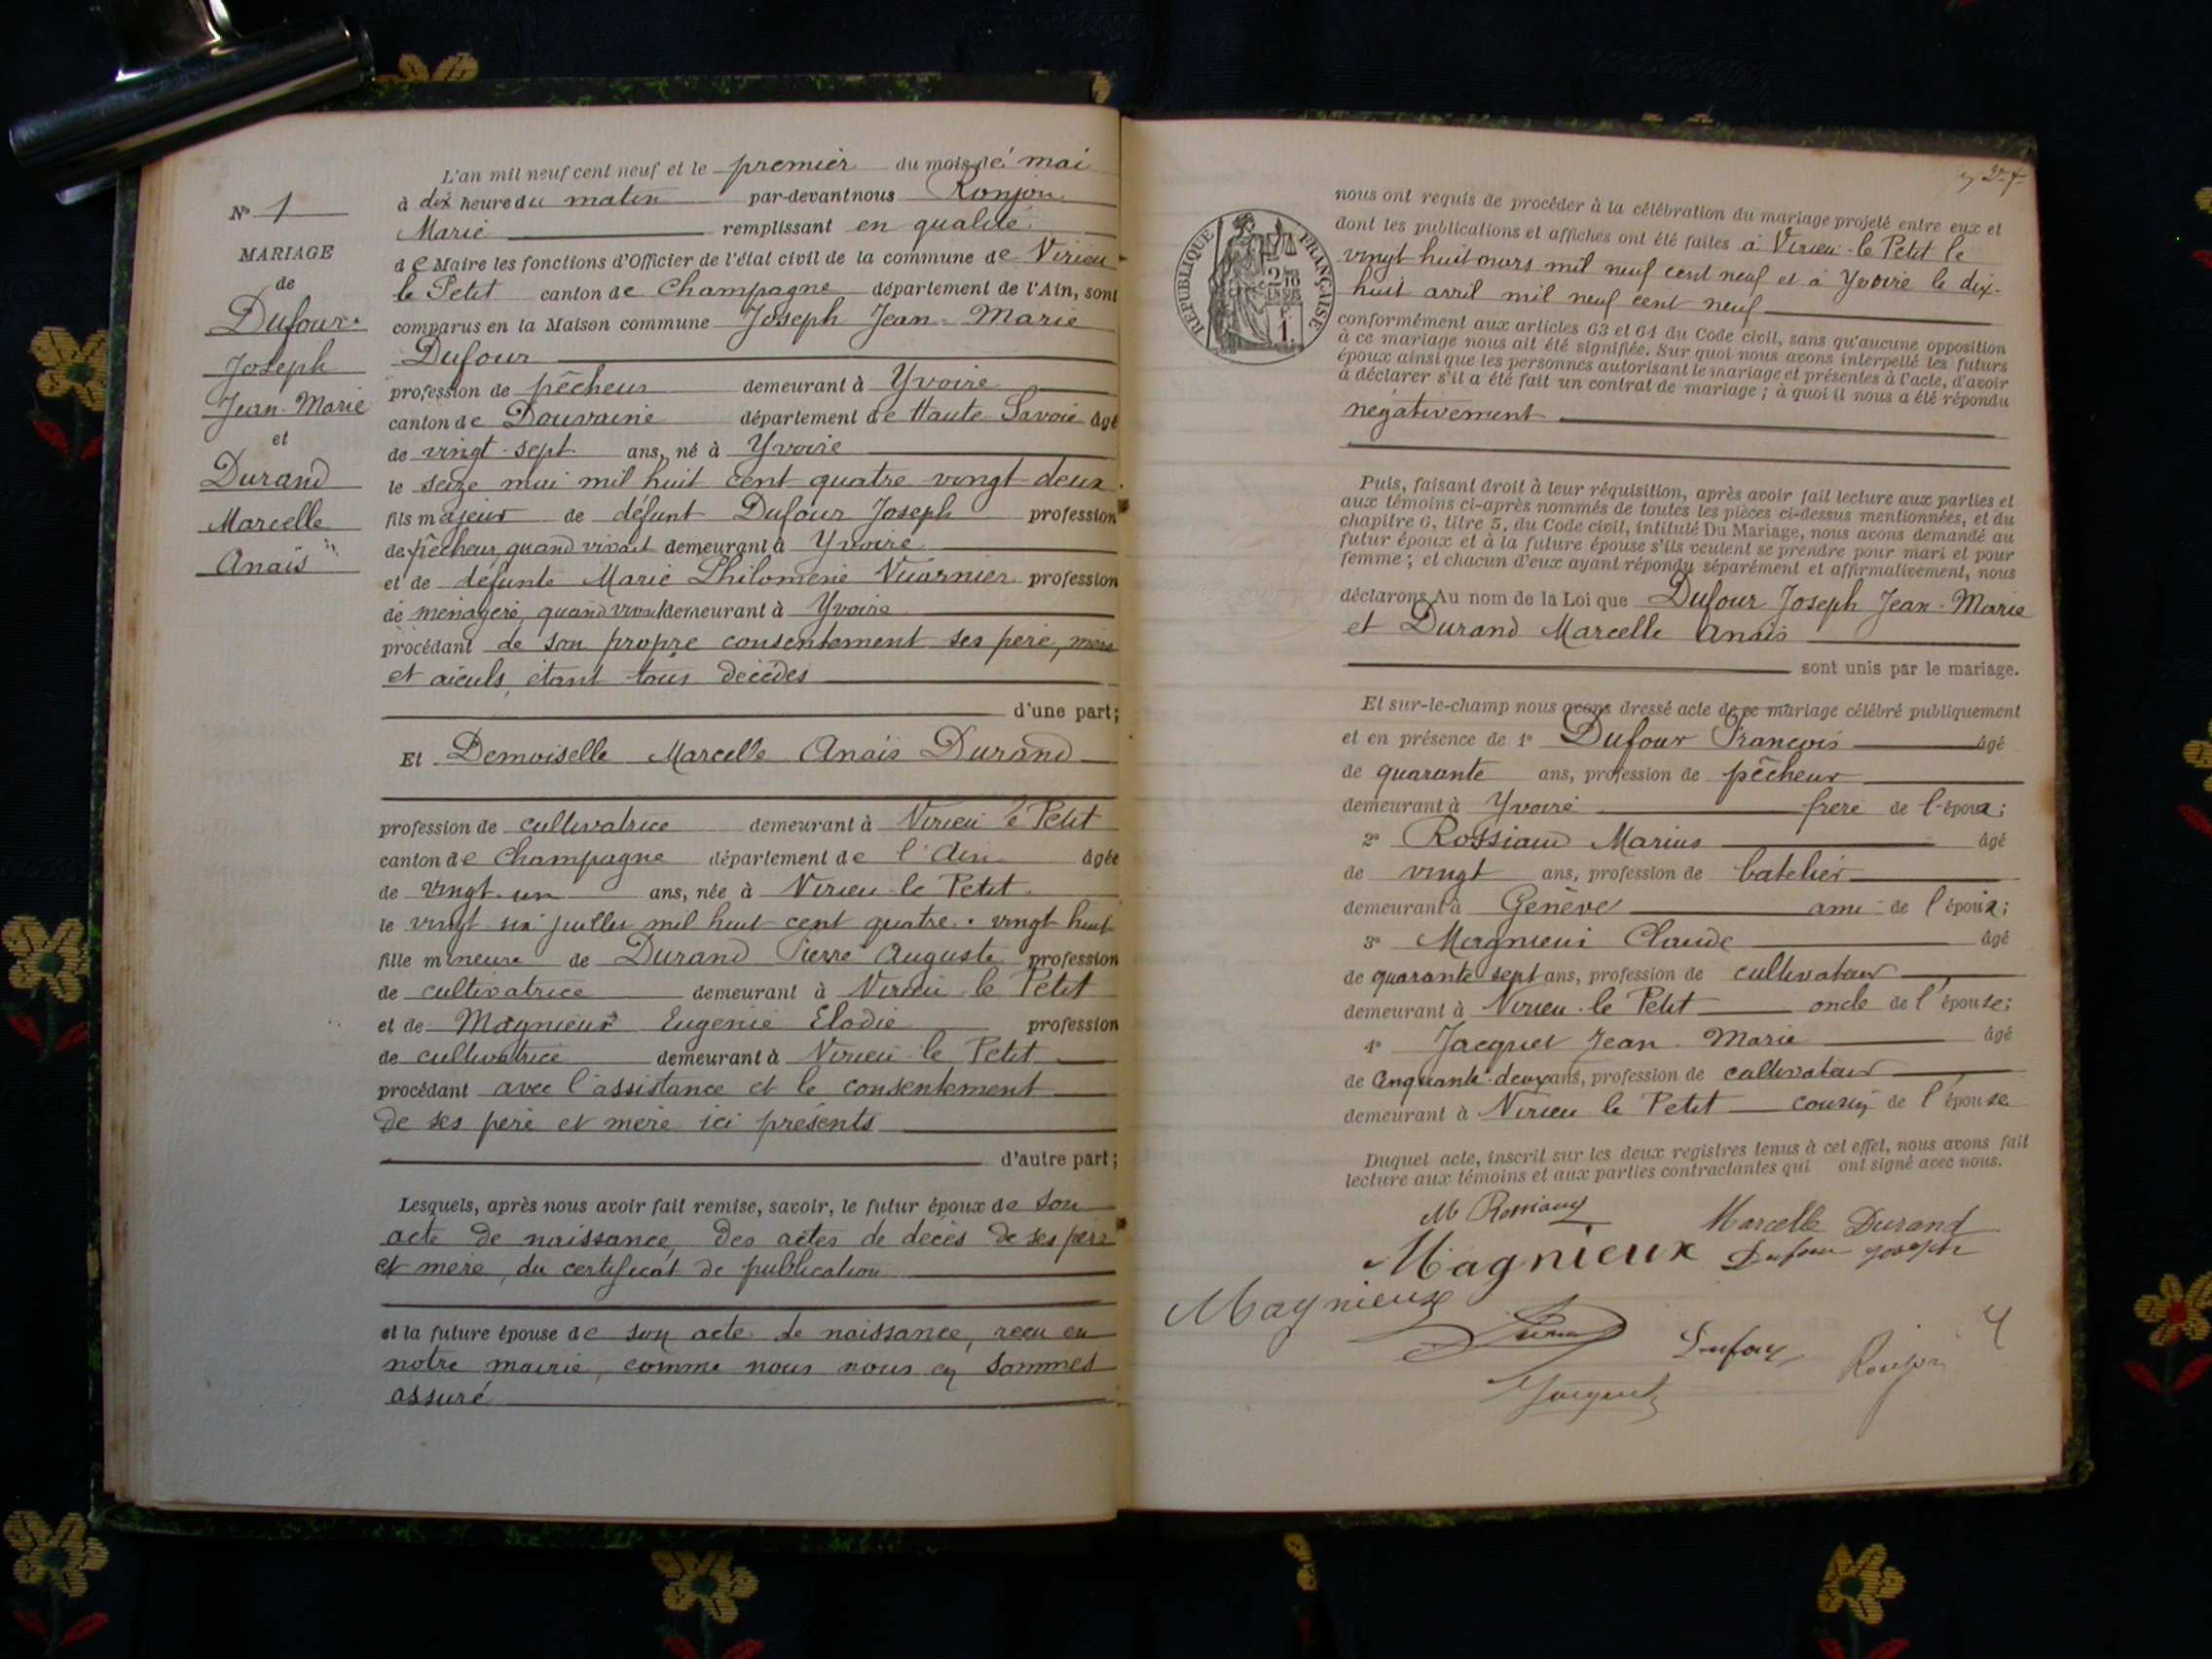 N° 1
MARIAGE
de
Dufour
Joseph
Jean-Marie
et
Durand
Marcelle
Anaïs
L'an mil neuf cent neuf et le premier du mois de mai
à dix heure du matin par-devant nous Ronjon
Marie remplissant en qualité
de Maire les fonctions d'Officier de l'état civil de la commune de Virieu
le Petit canton de Champagne département de l'Ain, sont
comparus en la Maison commune Joseph Jean-Marie
Dufour
profession de pêcheur demeurant à Yvoire
canton de Douvaine département de Haute Savoie âgé
de vingt-sept ans, né à Yvoire
le seize mai mil huit cent quatre vingt-deux
fils majeur de défunt Dufour Joseph profession
de pêcheur, quand vivait demeurant à Yvoire
et de défunte Marie Philomène Vuarnier profession
de ménagère, quand vivait demeurant à Yvoire
procédant de son propre consentement ses père, mère
et aïeuls étant tous décédés
d'une part;
Et Demoiselle Marcelle Anaïs Durand
profession de cultivatrice demeurant à Virieu le Petit
canton de Champagne département de l'Ain âgée
de vingt-un ans, née à Virieu-le-Petit
le vingt six juillet mil huit cent quatre-vingt huit
fille mineure de Durand Pierre Auguste profession
de cultivatrice demeurant à Virieu le Petit
et de Magnieux Eugénie Elodie profession
de cultivatrice demeurant à Virieu-le Petit
procédant avec l'assistance et le consentement
de ses père et mère ici présents
d'autre part;
Lesquels, après nous avoir fait remise, savoir, le futur époux de son
acte de naissance, des actes de décès de ses père
et mère, du certificat de publication
et la future épouse de son acte de naissance, reçu en
notre mairie, comme nous nous en sommes
assuré
REPUBLIQUE FRANÇAISE
2/10
EN SUS
nous ont requis de procéder à la célébration du mariage projeté entre eux et
dont les publications et affiches ont été faites à Virieu-le Petit le
vingt huit mars mil neuf cent neuf et à Yvoire le dix-
huit avril mil neuf cent neuf
conformément aux articles 63 et 64 du Code civil, sans qu'aucune opposition
à ce mariage nous ait été signifiée. Sur quoi nous avons interpellé les futurs
époux ainsi que les personnes autorisant le mariage et présentes à l'acte, d'avoir
à déclarer s'il a été fait un contrat de mariage; à quoi il nous a été répondu
négativement
Puis, faisant droit à leur réquisition, après avoir fait lecture aux parties et
aux témoins ci-après nommés de toutes les pièces ci-dessus mentionnées, et du
chapitre 6, titre 5, du Code civil, intitulé Du Mariage, nous avons demandé au
futur époux et à la future épouse s'ils veulent se prendre pour mari et pour
femme; et chacun d'eux ayant répondu séparément et affirmativement, nous
déclarons Au nom de la Loi que Dufour Joseph Jean-Marie
et Durand Marcelle Anaïs
sont unis par le mariage.
Et sur-le-champ nous avons dressé acte de ce mariage célébré publiquement
et en présence de 1° Dufour François âgé
de quarante ans, profession de pêcheur
demeurant à Yvoire frère de l'époux;
2° Rossiaud Marius âgé
de vingt ans, profession de batelier
demeurant à Genève ami de l'époux;
3° Magnieux Claude âgé
de quarante sept ans, profession de cultivateur
demeurant à Virieu-le Petit oncle de l'épouse;
4° Jacquet Jean-Marie âgé
de Cinquante-deux ans, profession de cultivateur
demeurant à Virieu le Petit cousin de l'épouse
Duquel acte, inscrit sur les deux registres tenus à cet effet, nous avons fait
lecture aux témoins et aux parties contractantes qui ont signé avec nous.
M Rossiaud Marcelle Durand
Magnieux Dufour Joseph
Magnieux
Durand Dufour Ronjon
Jacquet